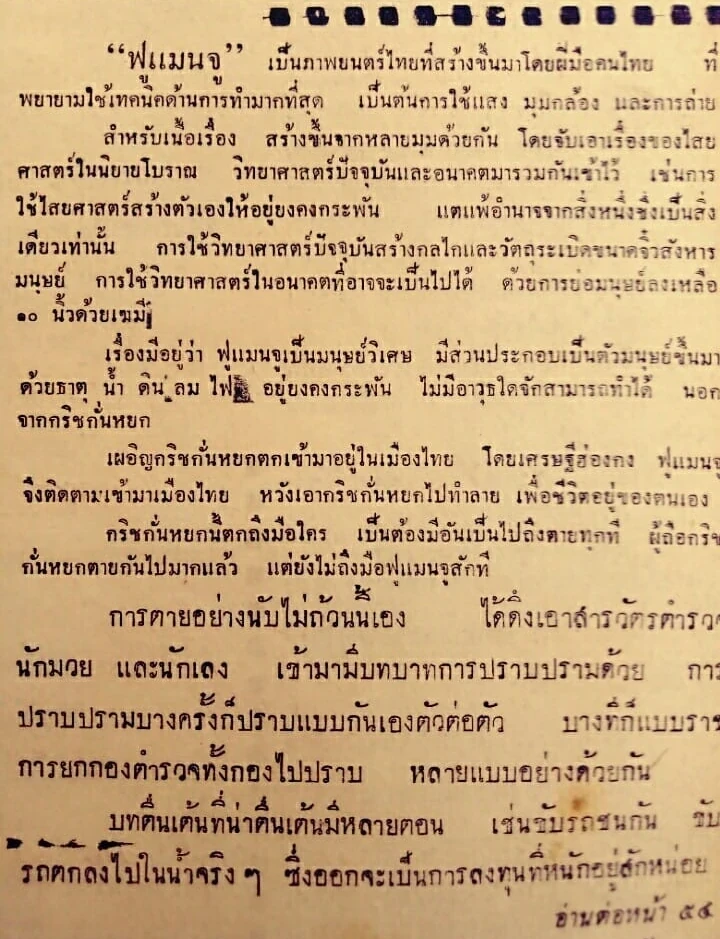 “ฟูแมนจู” เป็นภาพยนตร์ไทยที่สร้างขึ้นมาโดยฝีมือคนไทย ที่
พยายามใช้เทคนิคด้านการทำมากที่สุด เป็นต้นการใช้แสง มุมกล้อง และการถ่าย
สำหรับเนื้อเรื่อง สร้างขึ้นจากหลายมุมด้วยกัน โดยจับเอาเรื่องของไสย
ศาสตร์ในนิยายโบราณ วิทยาศาสตร์ปัจจุบันและอนาคตมารวมกันเข้าไว้ เช่นการ
ใช้ไสยศาสตร์สร้างตัวเองให้อยู่ยงคงกระพัน แตแพ้อำนาจจากสิ่งหนึ่งซึ่งเป็นสิ่ง
เดียวเท่านั้น การใช้วิทยาศาสตร์ปัจจุบันสร้างกลไกและวัตถุระเบิดขนาดจิ๋วสังหาร
มนุษย์ การใช้วิทยาศาสตร์ในอนาคตที่อาจจะเป็นไปได้ ด้วยการย่อมนุษย์ลงเหลือ
๑๐ นิ้วด้วยเฆมี
เรื่องมีอยู่ว่า ฟูแมนจูเป็นมนุษย์วิเศษ มีส่วนประกอบเป็นตัวมนุษย์ขึ้นมา
ด้วยธาตุ น้ำ ดิน ลม ไฟ อยู่ยงคงกระพัน ไม่มีอาวุธใดจักสามารถทำได้ นอก
จากกริชกั่นหยก
เผอิญกริชกั่นหยกตกเข้ามาอยู่ในเมืองไทย โดยเศรษฐีฮ่องกง ฟูแมนจู
จึงติดตามเข้ามาเมืองไทย หวังเอากริชกั่นหยกไปทำลาย เพื่อชีวิตอยู่ของตนเอง
กริชกั่นหยกนี้ตกถึงมือใคร เป็นต้องมีอันเป็นไปถึงตายทุกที ผู้ถือกริช
กั่นหยกตายกันไปมากแล้ว แต่ยังไม่ถึงมือฟูแมนจูสักที
การตายอย่างนับไม่ถ้วนนี้เอง ได้ดึงเอาสารวัตรตำรวจ
นักมวย และนักเลง เข้ามามีบทบาทการปราบปรามด้วย การ
ปราบปรามบางครั้งก็ปราบแบบกันเองตัวต่อตัว บางทีก็แบบราช
การยกกองตำรวจทั้งกองไปปราบ หลายแบบอย่างด้วยกัน
บทตื่นเต้นที่น่าตื่นเต้นมีหลายตอน เช่นขับรถชนกัน ขับ
รถตกลงไปในน้ำจริง ๆ ซึ่งออกจะเป็นการลงทุนที่หนักอยู่สักหน่อย
อ่านต่อหน้า ๕๔